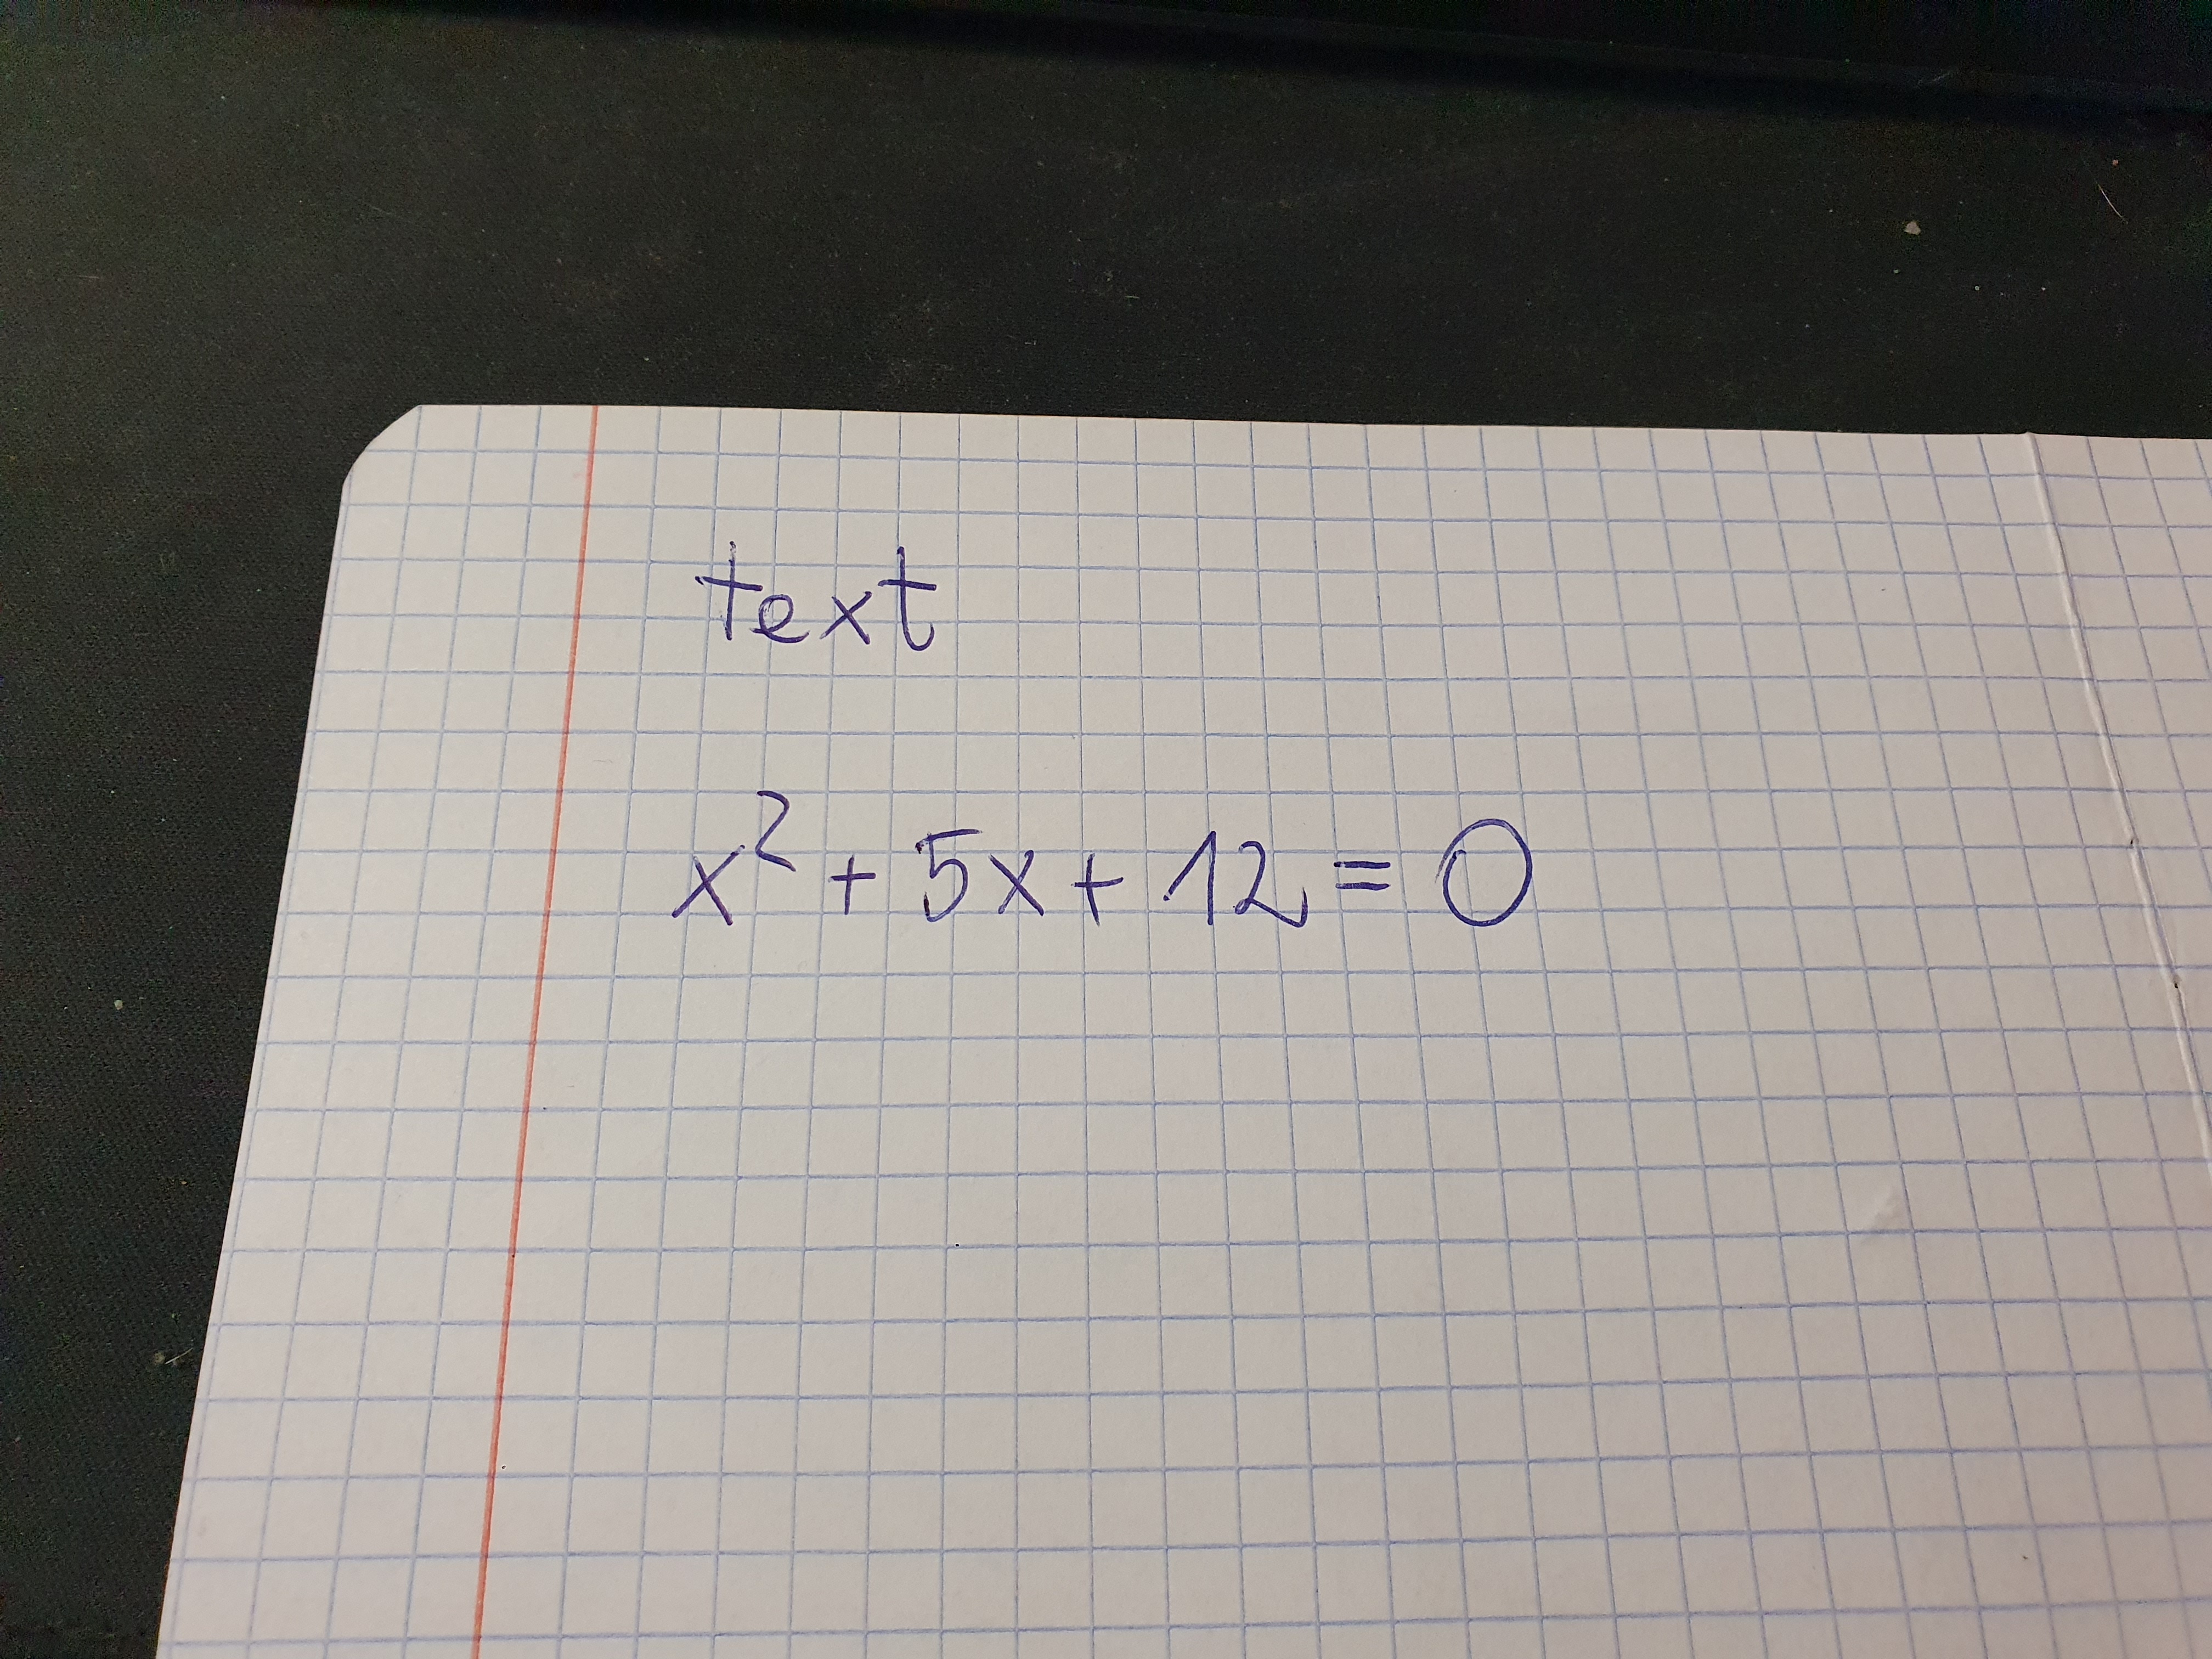 text
x² + 5x + 12 = 0